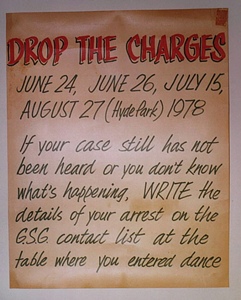 DROP THE CHARGES
JUNE 24, JUNE 26, JULY 15,
AUGUST 27 (Hyde Park) 1978
If your case still has not
been heard or you don't know
what's happening, WRITE the
details of your arrest on the
G.S.G. contact list at the
table where you entered dance